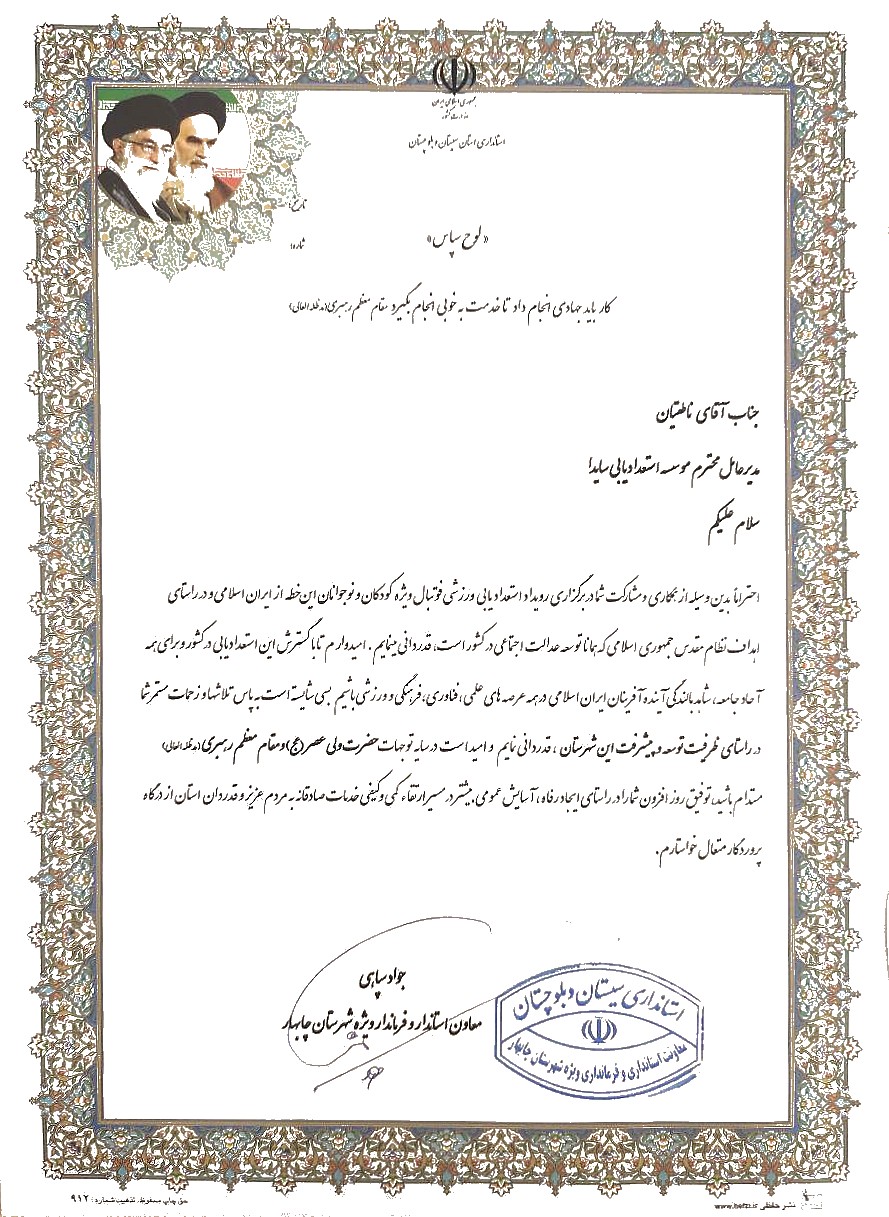 جمهوری اسلامی ایران
وزارت کشور
استانداری استان سیستان و بلوچستان
تاریخ:
شماره:
«لوح سپاس»
کار باید جهادی انجام داد تا خدمت به خوبی انجام بگیرد مقام معظم رهبری(مدظله العالی)
جناب آقای ناطقیان
مدیرعامل محترم موسسه استعدادیابی سایدا
سلام علیکم
احتراماً بدین وسیله از همکاری و مشارکت شما در برگزاری رویداد استعدادیابی ورزشی فوتبال ویژه کودکان و نوجوانان این خطه از ایران اسلامی و در راستای
اهداف نظام مقدس جمهوری اسلامی که همانا توسعه عدالت اجتماعی در کشور است، قدردانی مینمایم. امیدوارم تا با گسترش این استعدادیابی در کشور و برای همه
آحاد جامعه، شاهد بالندگی آینده آفرینان ایران اسلامی در همه عرصه های علمی، فناوری، فرهنگی و ورزشی باشیم بسی شایسته است به پاس تلاشها و زحمات مستمر شما
در راستای ظرفیت توسعه و پیشرفت این شهرستان، قدردانی نمایم و امید است در سایه توجهات حضرت ولی عصر(عج) و مقام معظم رهبری(مدظله العالی)
مستدام باشید، توفیق روز افزون شما را در راستای ایجاد رفاه، آسایش عمومی، بیشتر در مسیر ارتقاء کمی و کیفی خدمات صادقانه به مردم عزیز و قدردان استان از درگاه
پروردگار متعال خواستارم.
جواد سپاهی
معاون استاندار و فرماندار ویژه شهرستان چابهار
استانداری سیستان و بلوچستان
معاونت استانداری و فرمانداری ویژه شهرستان چابهار
حق چاپ محفوظ، تذهیب شماره: ۹۱۲
نشر حافظی